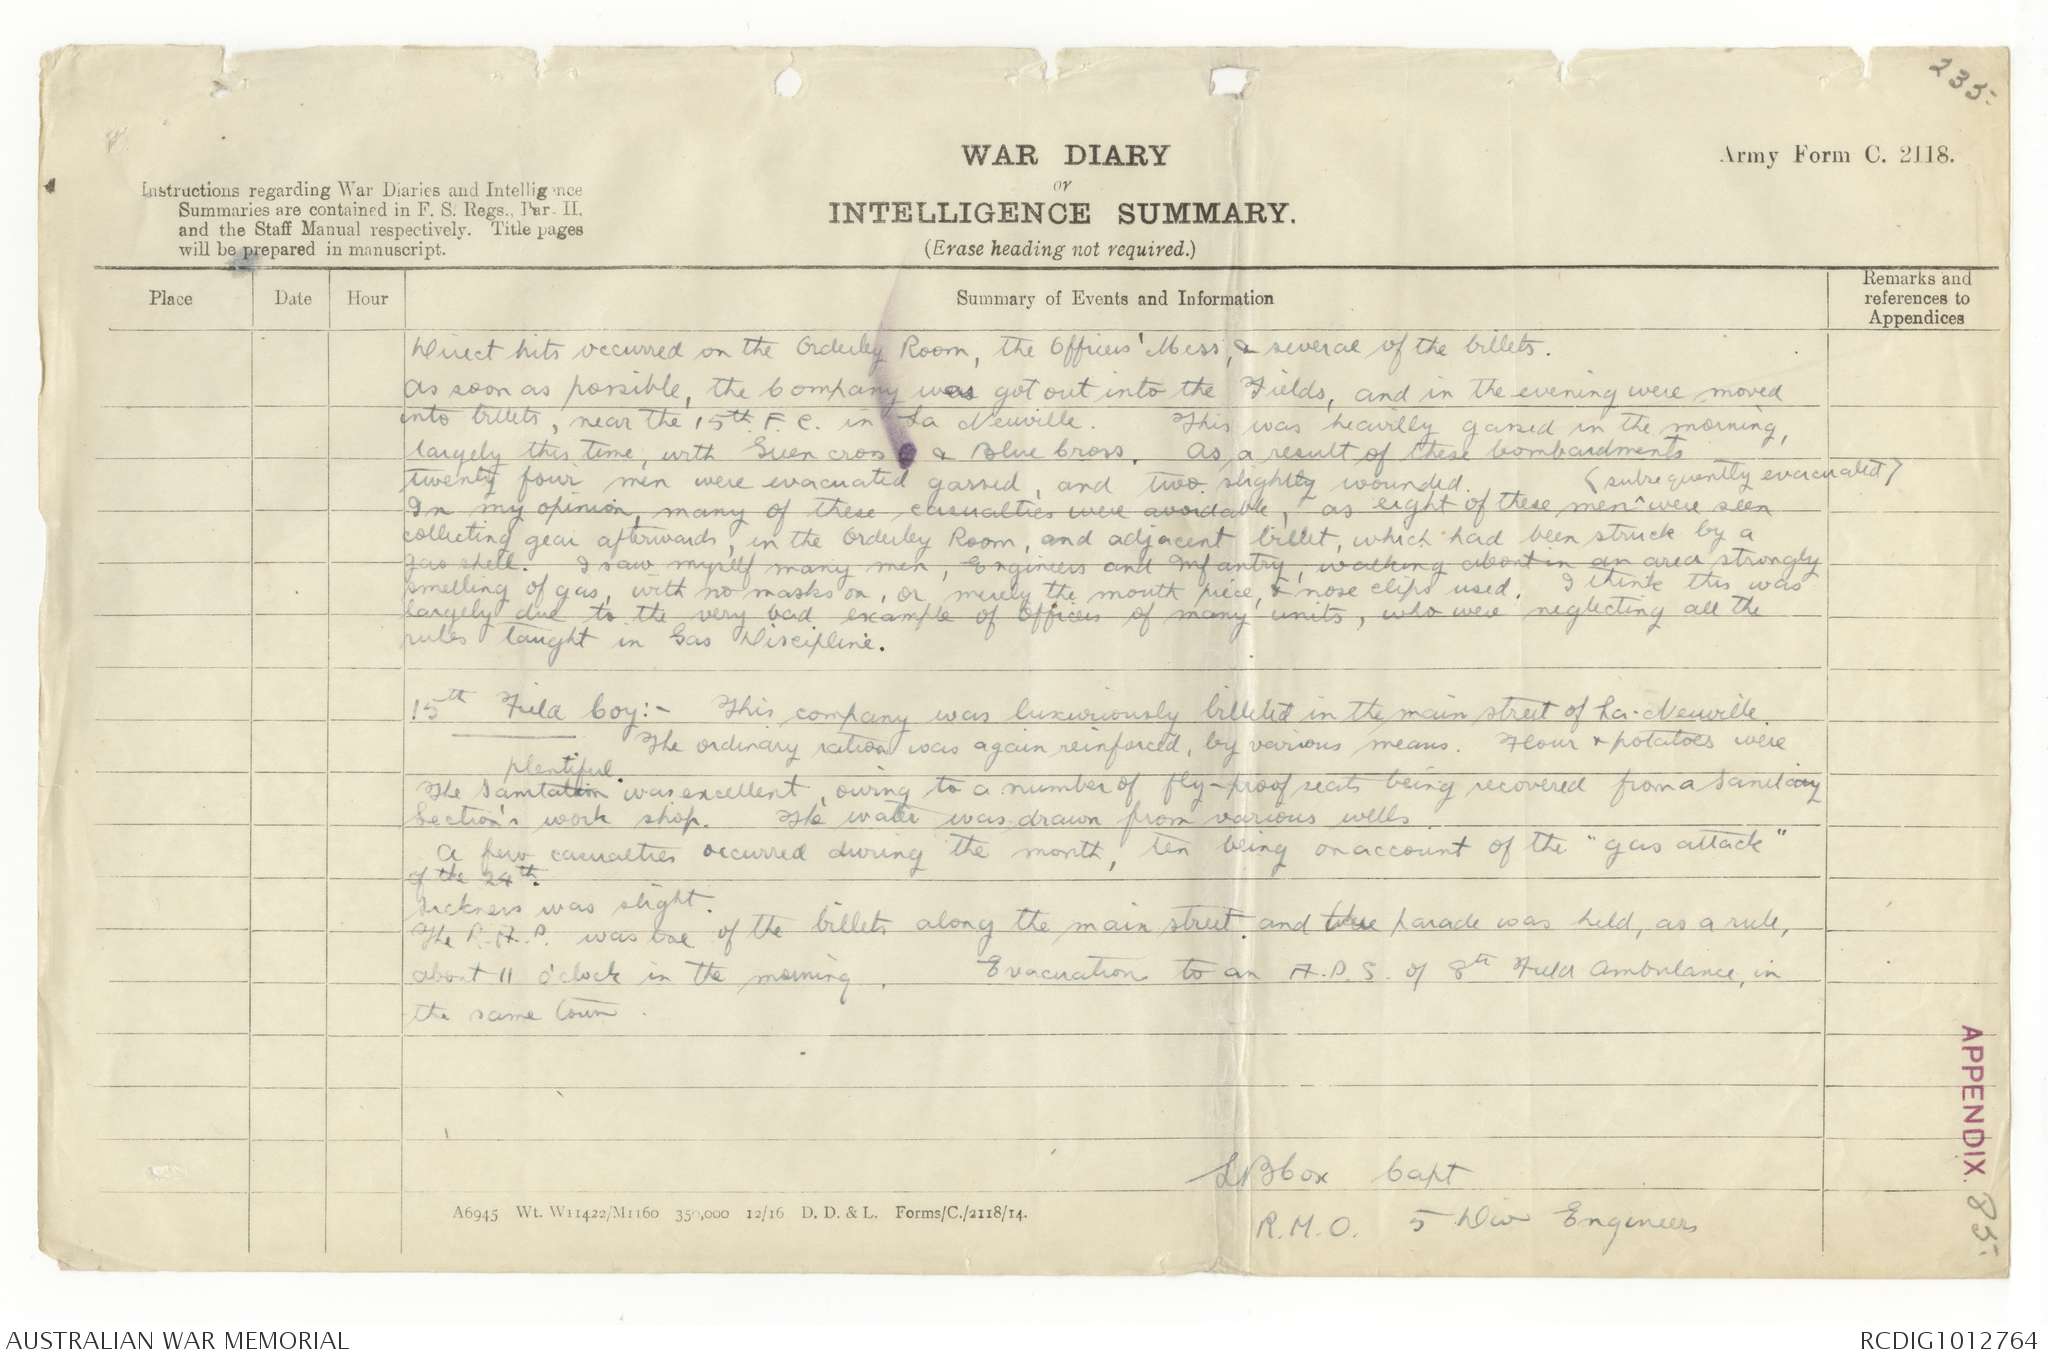 235.
WAR DIARY
or
INTELLIGENCE SUMMARY.
(Erase heading not required.)
Army Form C. 2118.
Instructions regarding War Diaries and Intelligence
Summaries are contained in F. S. Regs., Par. II.
and the Staff Manual respectively. Title pages
will be prepared in manuscript.
Place
Date
Hour
Summary of Events and Information
Remarks and
references to
Appendices
Direct hits occurred on the Orderley Room, the Officers' Mess, & several of the billets.
As soon as possible, the Company was got out into the Fields, and in the evening were moved
into billets, near the 15th F.C. in La Neuville. This was heavilly gassed in the morning,
largely this time, with Green cross & Blue Cross. As a result of these bombardments
twenty four men were evacuated gassed, and two slightly wounded. (subsequently evacuated)
In my opinion, many of these casualties were avoidable, as eight of these men ^ were seen
collecting gear afterwards, in the Orderley Room, and adjacent billet, which had been struck by a
gas shell. I saw myself many men, Engineers and Infantry, walking about in an area strongly
smelling of gas, with no masks on, or merely the mouth piece, & nose clips used. I think this was
largely due to the very bad example of Officers of many units, who were neglecting all the
rules taught in Gas Discipline.
15th Field Coy:- This company was luxuriously billeted in the main street of La-Neuville.
The ordinary ration was again reinforced, by various means. Flour & potatoes were
plentiful.
The Sanitation was excellent, owing to a number of fly-proof seats being recovered from a Sanitary
Section's work shop. The water was drawn from various wells.
A few casualties occurred during the month, ten being on account of the "gas attack"
of the 24th.
Sickness was slight.
The R.A.P. was one of the billets along the main street. and the parade was held, as a rule,
about 11 o'clock in the morning. Evacuation to an A.D.S. of 8th Field Ambulance, in
the same town.
LBCox Capt
R.M.O. 5 Div Engineers
A6945 Wt. W11422/M1160 350,000 12/16 D. D. & L. Forms/C./2118/14.
APPENDIX. 85.
AUSTRALIAN WAR MEMORIAL
RCDIG1012764